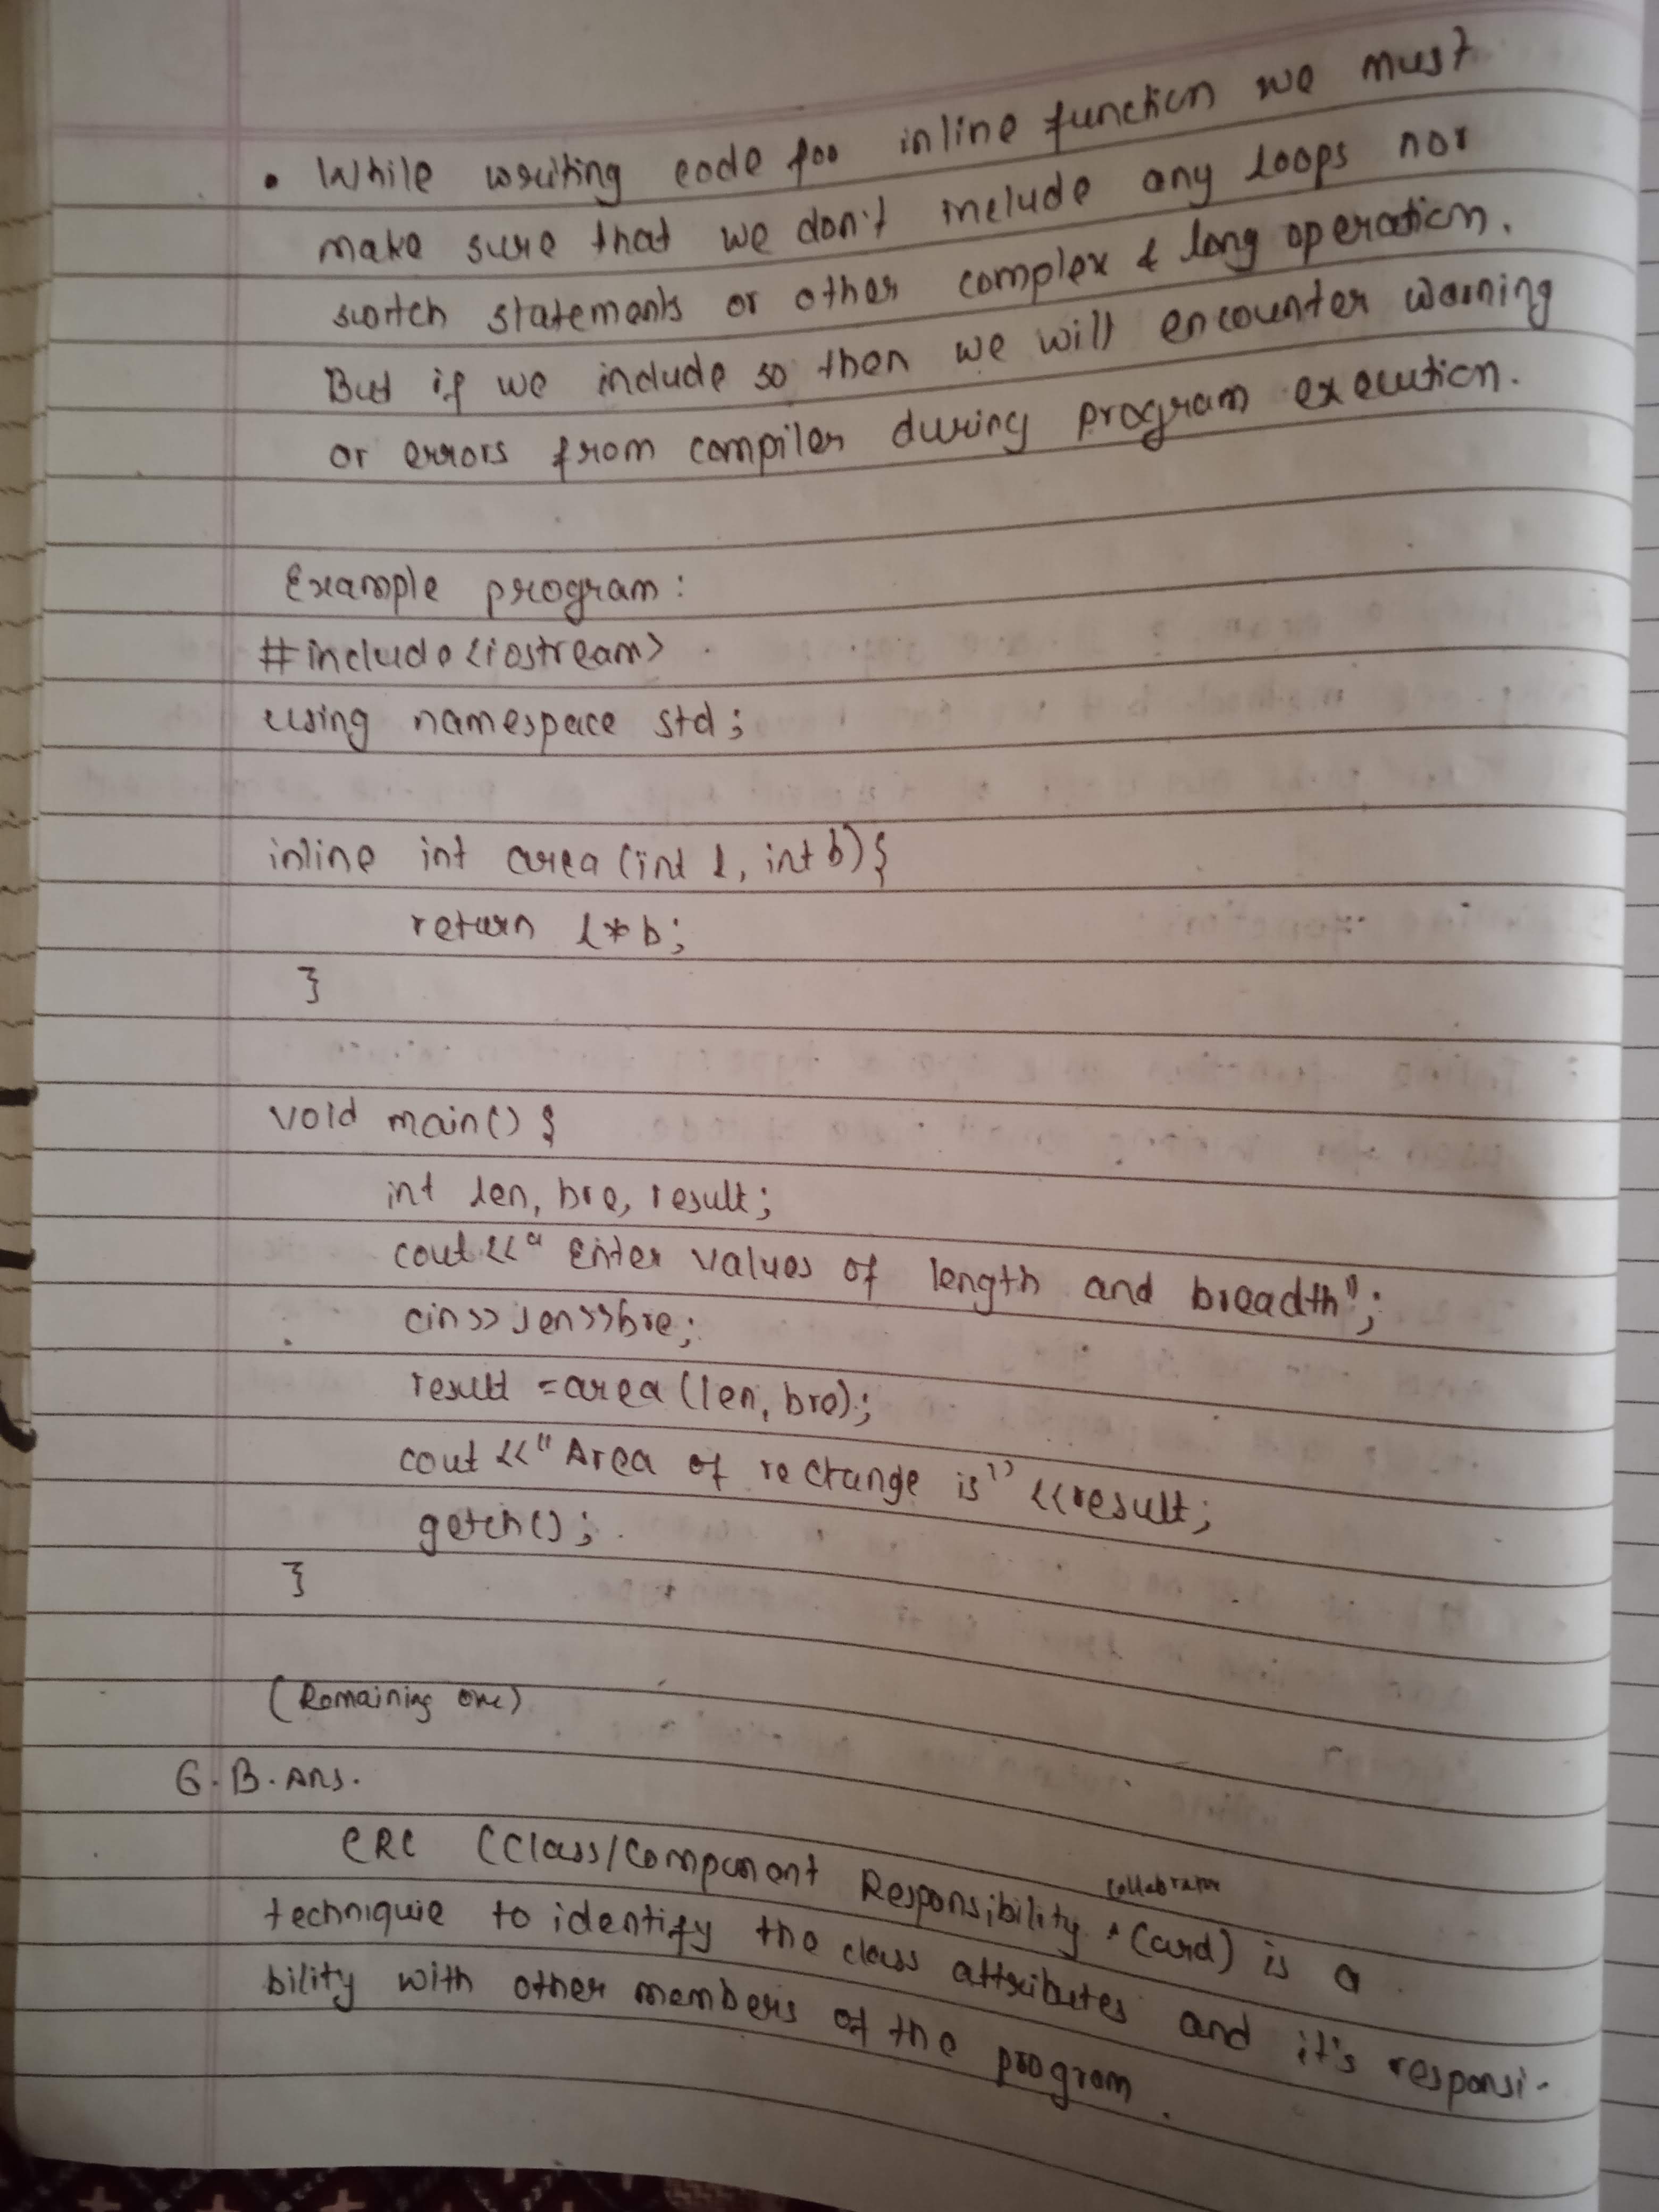 • While writing code for inline function we must
make sure that we don't include any loops nor
switch statements or other complex & long operation.
But if we include so then we will encounter warning
or errors from compiler during program execution.
Example program:
#include<iostream>
using namespace std;
inline int area (int l, int b){
return l*b;
}
void main() {
int len, bre, result;
cout<<" Enter values of length and breadth";
cin>>len>>bre;
result =area (len, bre);
cout<<"Area of rectange is"<<result;
getch();
}
(Remaining one)
6. B. Ans.
CRC (Class/Component Responsibility collabrator (card) is a
techniquie to identify the class attributes and it's responsi-
bility with other members of the program.